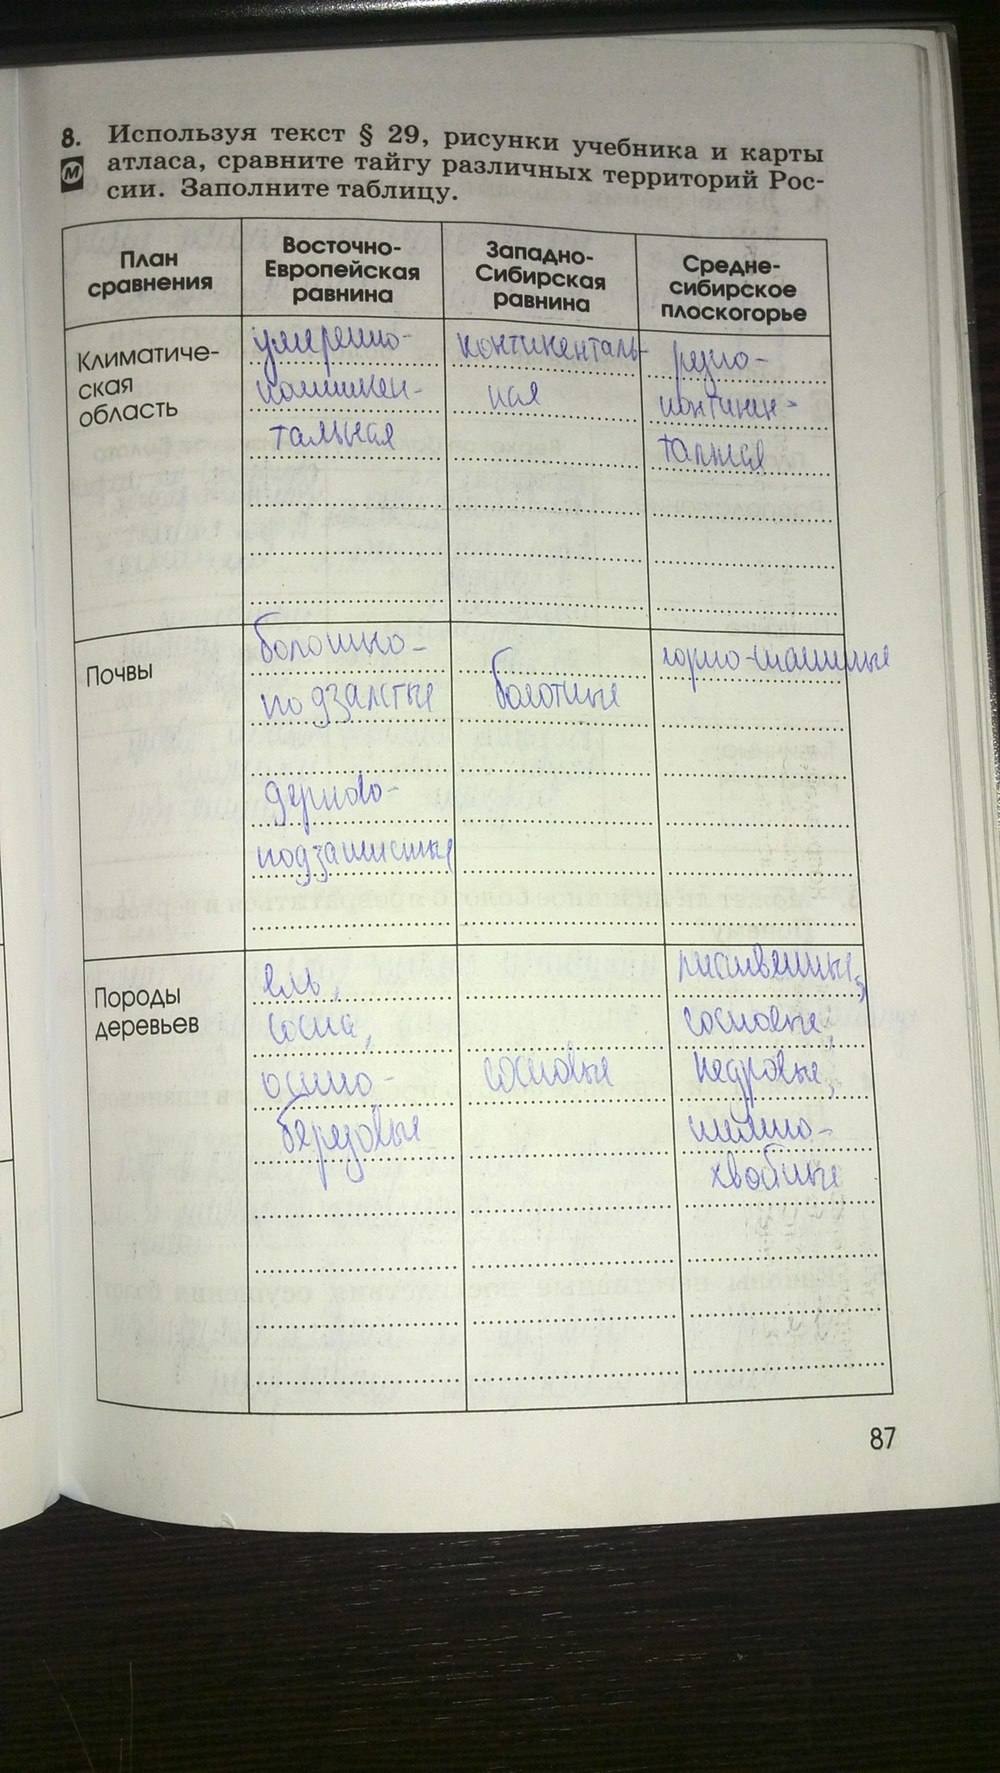 8. Используя текст § 29, рисунки учебника и карты
атласа, сравните тайгу различных территорий Рос-
сии. Заполните таблицу.
План
сравнения
Восточно-
Европейская
равнина
Западно-
Сибирская
равнина
Средне-
сибирское
плоскогорье
Климатиче-
ская
область
умеренно-
континен-
тальная
континенталь-
ная
резко-
континен-
тальная
Почвы
болотно-
подзолистые
дерново-
подзолистые
болотные
горно-таежные
Породы
деревьев
ель,
сосна,
осино-
березовые
сосновые
лиственные,
сосновые,
кедровые,
темно-
хвойные
87